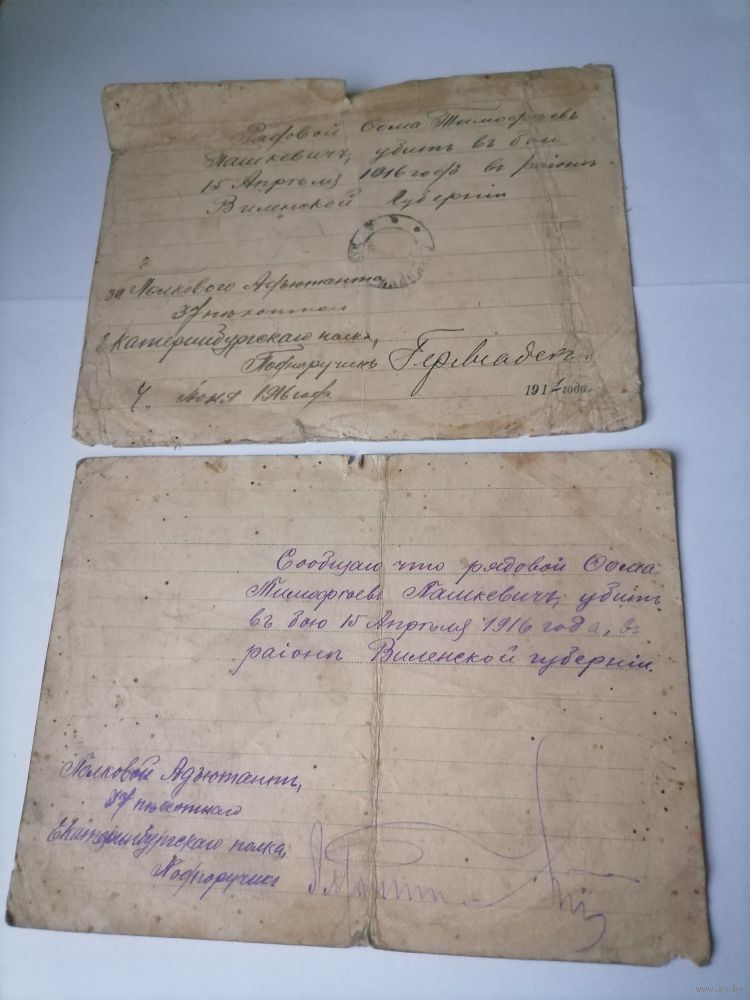 Рядовой Ѳома Тимофѣевъ
Пашкевичъ, убитъ въ бою
15 Апрѣля 1916 года въ районѣ
Виленской Губерніи
за Полкового Адъютанта,
37 пѣхотнаго
Екатеринбургскаго полка,
Подпоручикъ
4. Іюня 1916 года
191 года.
Сообщаю что рядовой Ѳома
Тимофѣевъ Пашкевичъ, убитъ
въ бою 15 Апрѣля 1916 года, въ
районѣ Виленской губерніи.
Полковой Адъютантъ,
37 пѣхотнаго
Екатеринбургскаго полка,
Подпоручикъ
www.ay.by